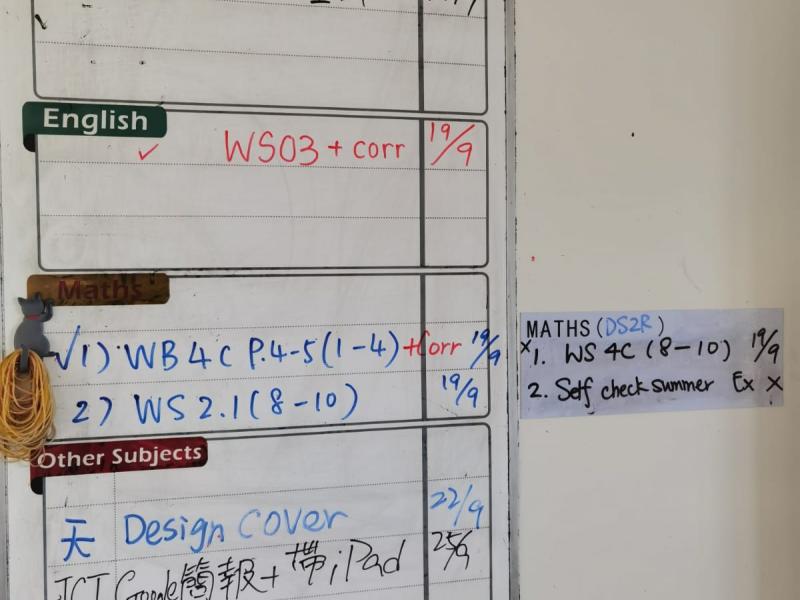 English
✓ WS03 + corr 19/9
Maths
√1) WB 4C P.4-5(1-4)+Corr 19/9
2) WS 2.1(8-10) 19/9
Other Subjects
天 Design cover 22/9
ICT Google簡報+帶iPad 25/9
MATHS(DS2R)
×1. WS 4C (8-10) 19/9
2. Self check summer Ex ×